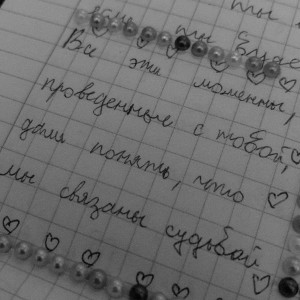 ты
Все эти моменты,
проведенные с тобой,
дали понять, что
мы связаны судьбой